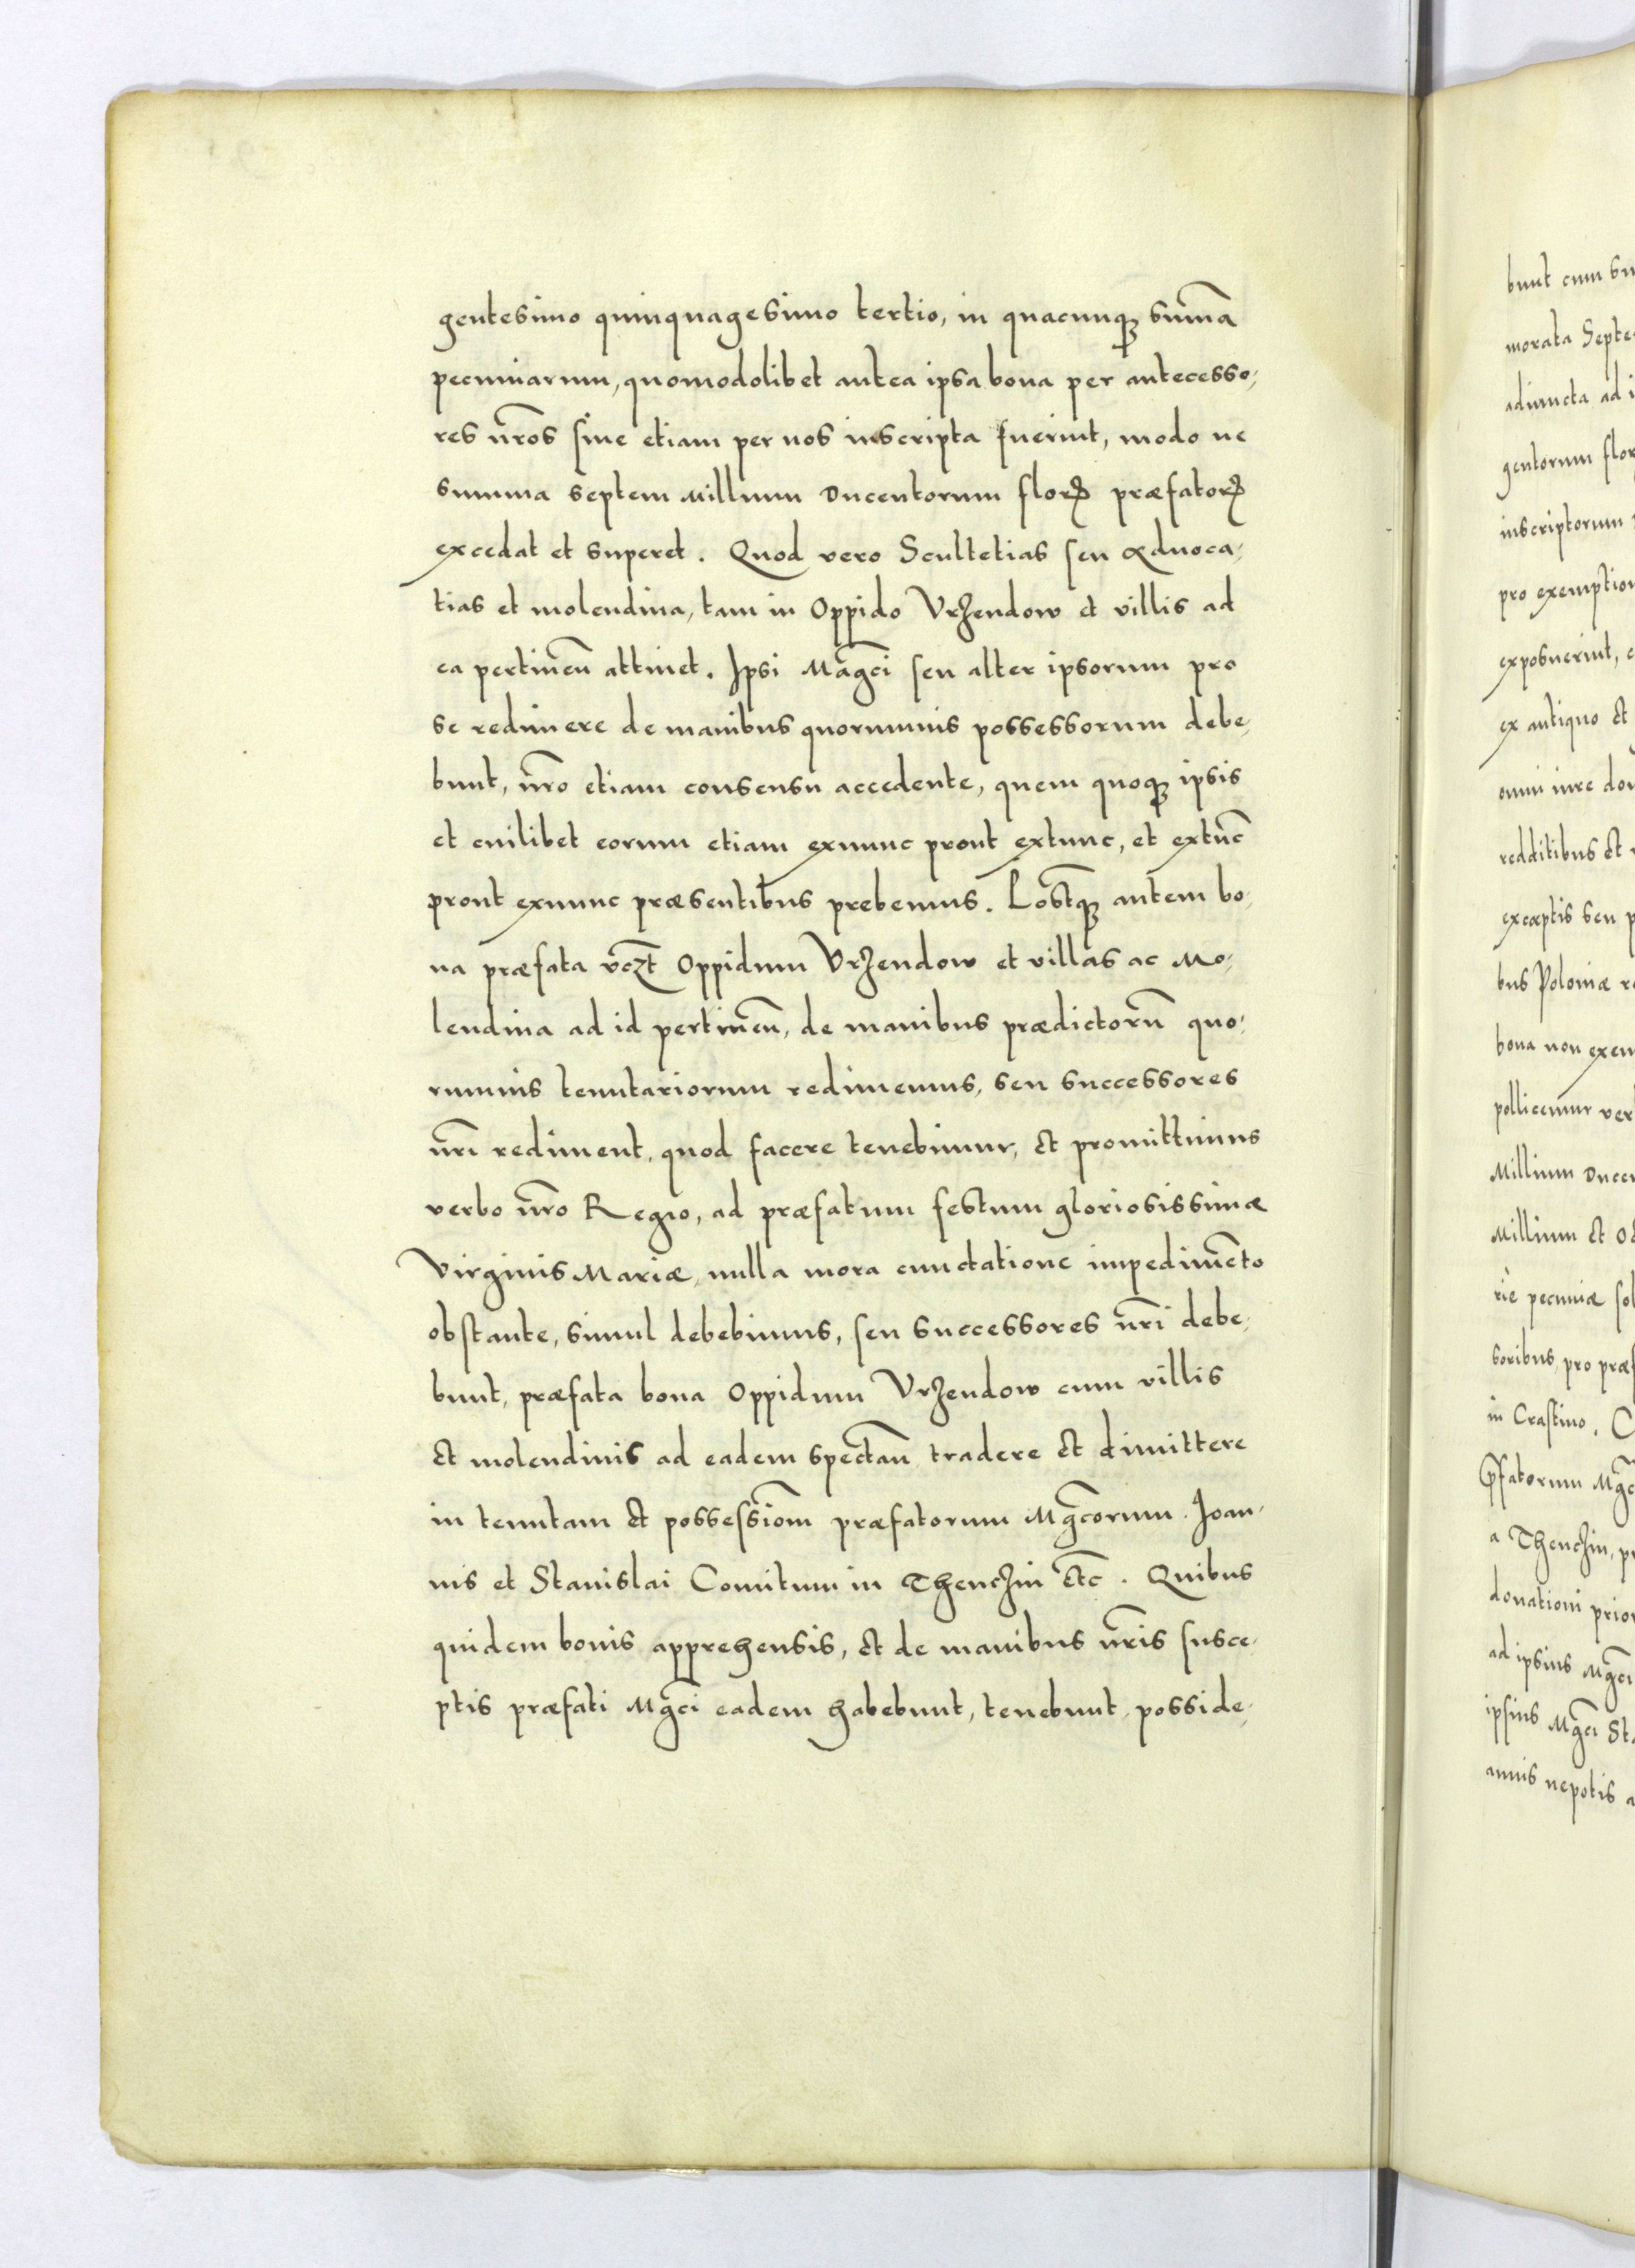 gentesimo quinquagesimo tertio, in quacunqꝫ sum̃a
pecuniarum, quomodolibet antea ipsa bona per antecesso,
res nr̃os siue etiam per nos inscripta fuerint, modo ne
summa septem Millium Ducentorum florꝝ præfatorꝝ
excedat et superet. Quod vero Scultetias seu aduoca,
tias et molendina, tam in Oppido Vrzendow et villis ad
ea pertineñ attinet. Ipsi Mag̃ci seu alter ipsorum pro
se redimere de manibus quorumuis possessorum debe,
bunt, nr̃o etiam consensu accedente, quem quoqꝫ ipsis
et cuilibet eorum etiam exnunc prout extunc, et extũc
prout exnunc præsentibus prebemus. Postqꝫ autem bo,
na præfata vczt̃ Oppidum Vrzendow et villas ac Mo,
lendina ad id pertineñ, de manibus prædictorũ quo,
rumuis tenutariorum redimemus, seu successores
nr̃i rediment, quod facere tenebimur, et promittimus
verbo nr̃o Regio, ad præfatum festum gloriosissimæ
Virginis Mariæ, nulla mora cunctatione impedimẽto
obstante, simul debebimus, seu successores nr̃i debe,
bunt, præfata bona Oppidum Vrzendow cum villis
et molendinis ad eadem spectañ tradere et dimittere
in tenutam et possessiõm præfatorum Mg̃corum. Joan,
nis et Stanislai Comitum in Thenczin etc̃. Quibus
quidem bonis apprehensis, et de manibus nr̃is susce,
ptis præfati Mg̃ci eadem habebunt, tenebunt, posside,
bunt cum su
morata Septe
adiuncta ad i
gentorum flor
inscriptorum
pro exemption
exposuerint, e
ex antiquo et
omni iure do
redditibus et
exceptis seu p
bus Poloniæ r
bona non exem
pollicemur ver
Millium Ducen
Millium et O
riè pecuniæ sol
soribus, pro præf
in Crastino. C
p̃fatorum Mg̃c
a Thenczin, p
donationi prior
ad ipsius Mg̃ci
ipsius Mg̃ci St
annis nepotis a